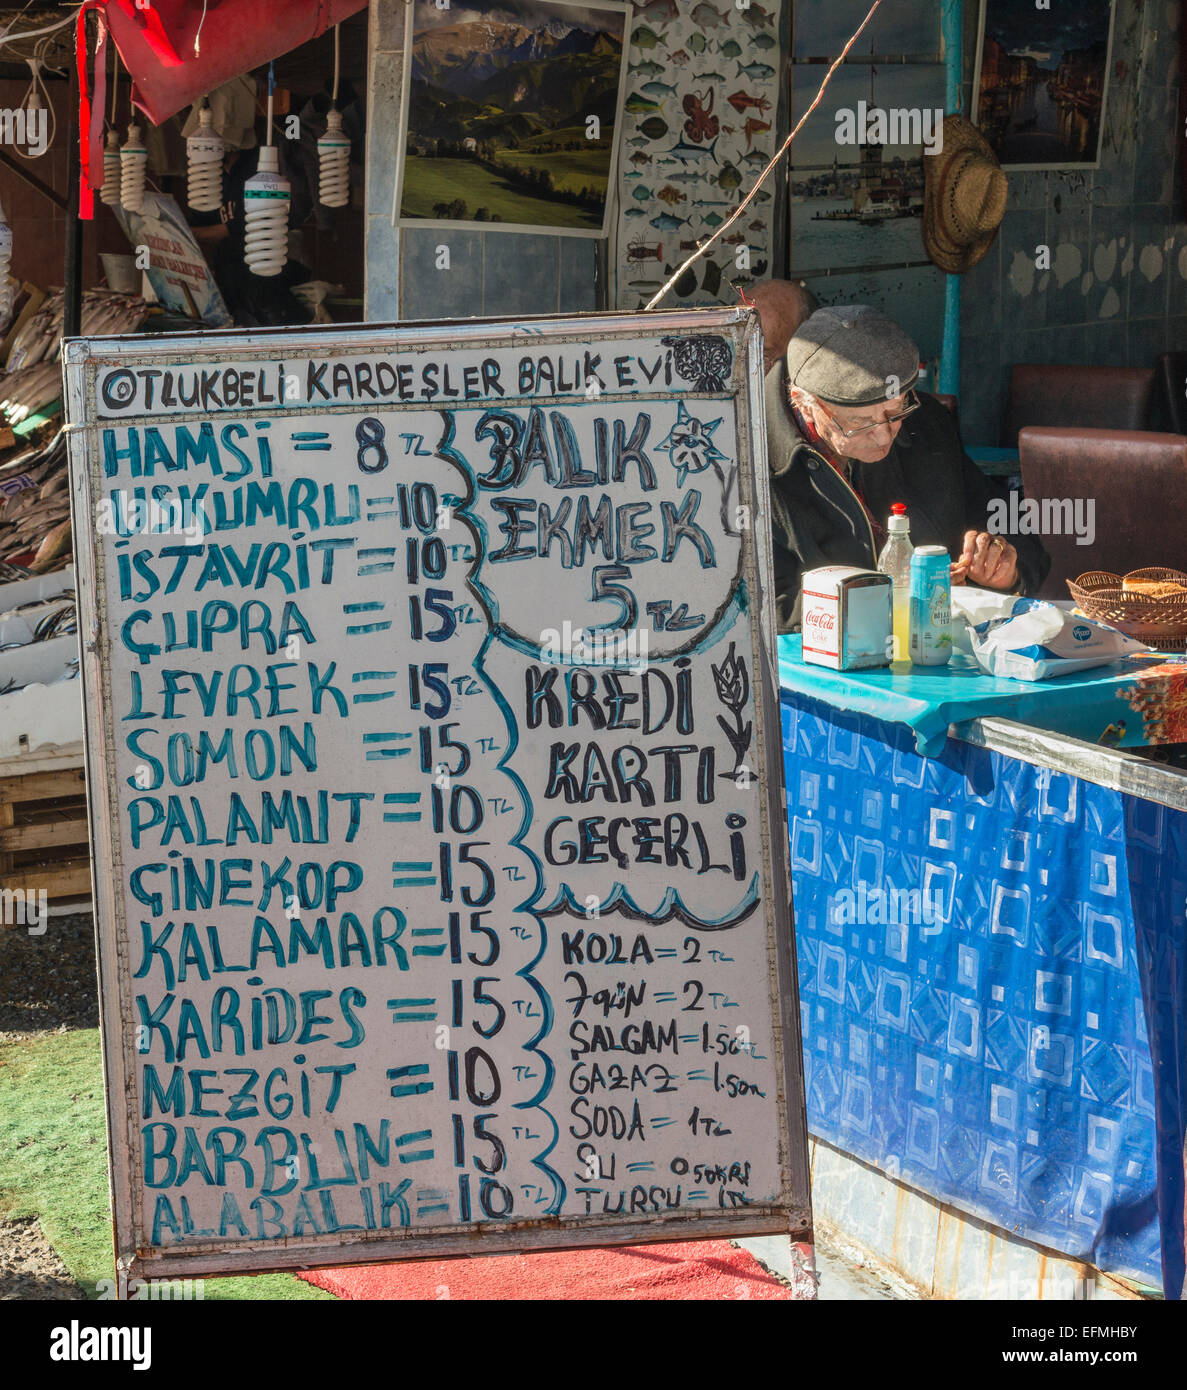 OTLUKBELİ KARDEŞLER BALIK EVİ
HAMSİ = 8 TL
USKUMRU = 10 TL
İSTAVRİT = 10 TL
ÇUPRA = 15 TL
LEVREK = 15 TL
SOMON = 15 TL
PALAMUT = 10 TL
ÇİNEKOP = 15 TL
KALAMAR = 15 TL
KARİDES = 15 TL
MEZGİT = 10 TL
BARBUN = 15 TL
ALABALIK = 10 TL
BALIK
EKMEK
5 TL
KREDİ
KARTI
GEÇERLİ
KOLA = 2 TL
7gün = 2 TL
ŞALGAM = 1.50 TL
GAZAZ = 1.50
SODA = 1 TL
SU = 0.50KRŞ
TURŞU = 1 TL
Coca-Cola
Coke
alamy
alamy stock photo
EFMHBY
www.alamy.com